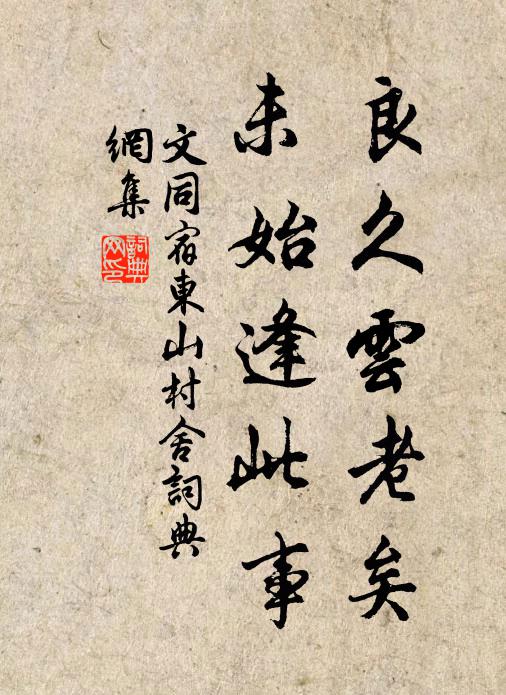 良久雲老矣
未始逢此事
文同宿東山村舍詞典
網集
詞典
网印